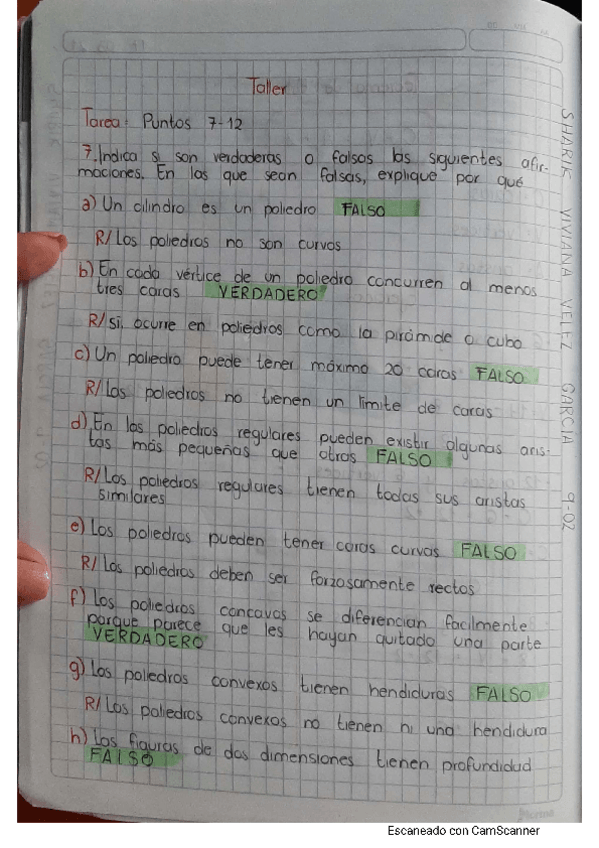 Taller
Tarea: Puntos 7-12
7. Indica si son verdaderas o falsos las siguientes afir-
maciones. En las que sean falsas, explique por qué
a) Un cilindro es un poliedro FALSO
R/ Los poliedros no son curvos
b) En cada vértice de un poliedro concurren al menos
tres caras VERDADERO
R/ si, ocurre en poliedros como la pirámide o cubo
c) Un poliedro puede tener máximo 20 caras FALSO
R/ Los poliedros no tienen un limite de caras
d) En los poliedros regulares pueden existir algunas aris-
tas más pequeñas que otras FALSO
R/ Los poliedros regulares tienen todas sus aristas
similares
e) Los poliedros pueden tener caras curvas FALSO
R/ Los poliedros deben ser forzosamente rectos
f) Los poliedros concavos se diferencian facilmente
porque parece que les hayan quitado una parte
VERDADERO
g) Los poliedros convexos tienen hendiduras FALSO
R/ Los poliedros convexos no tienen ni una hendidura
h) Las figuras de dos dimensiones tienen profundidad
FALSO
SHARIK VIVIANA VELEZ GARCIA 9-02
Escaneado con CamScanner